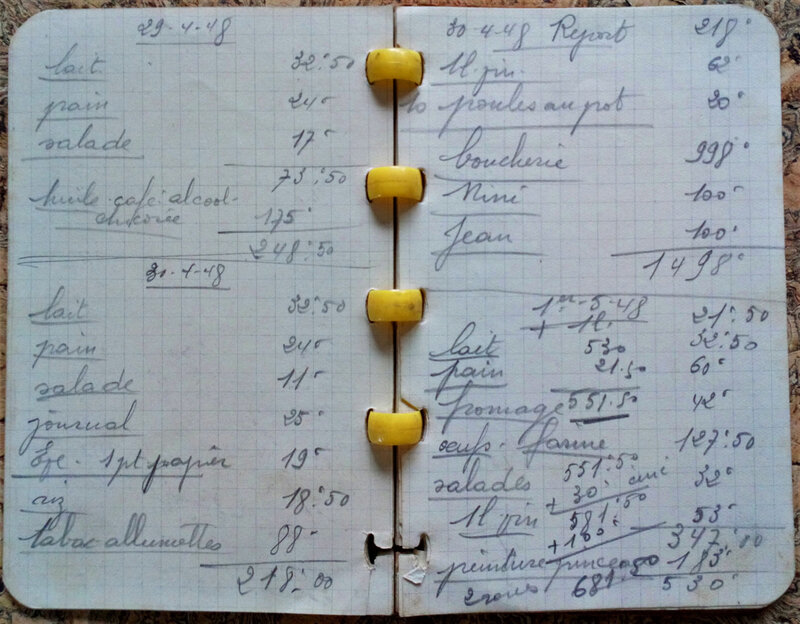 29-4-48
lait 32.50
pain 24
salade 17
73.50
huile-café-alcool-
chicorée 175
248.50
30-4-48
lait 32.50
pain 24
salade 11
journal 25
1 pt papier 19
riz 18.50
tabac allumettes 88
218.00
30-4-48 Report 218
1l. vin. 62
10 poules au pot 20
boucherie 998
Nini 100
Jean 100
1498
1er-5-48
+ 1l. 21.50
lait 530 32.50
pain 21.50 60
fromage 551.50 42
oeufs. farine 127.50
salades 551.50 32
+ 30. ciné
1l vin 581.50 53
+ 100 342.00
peinture pinceau 183
681.50 530